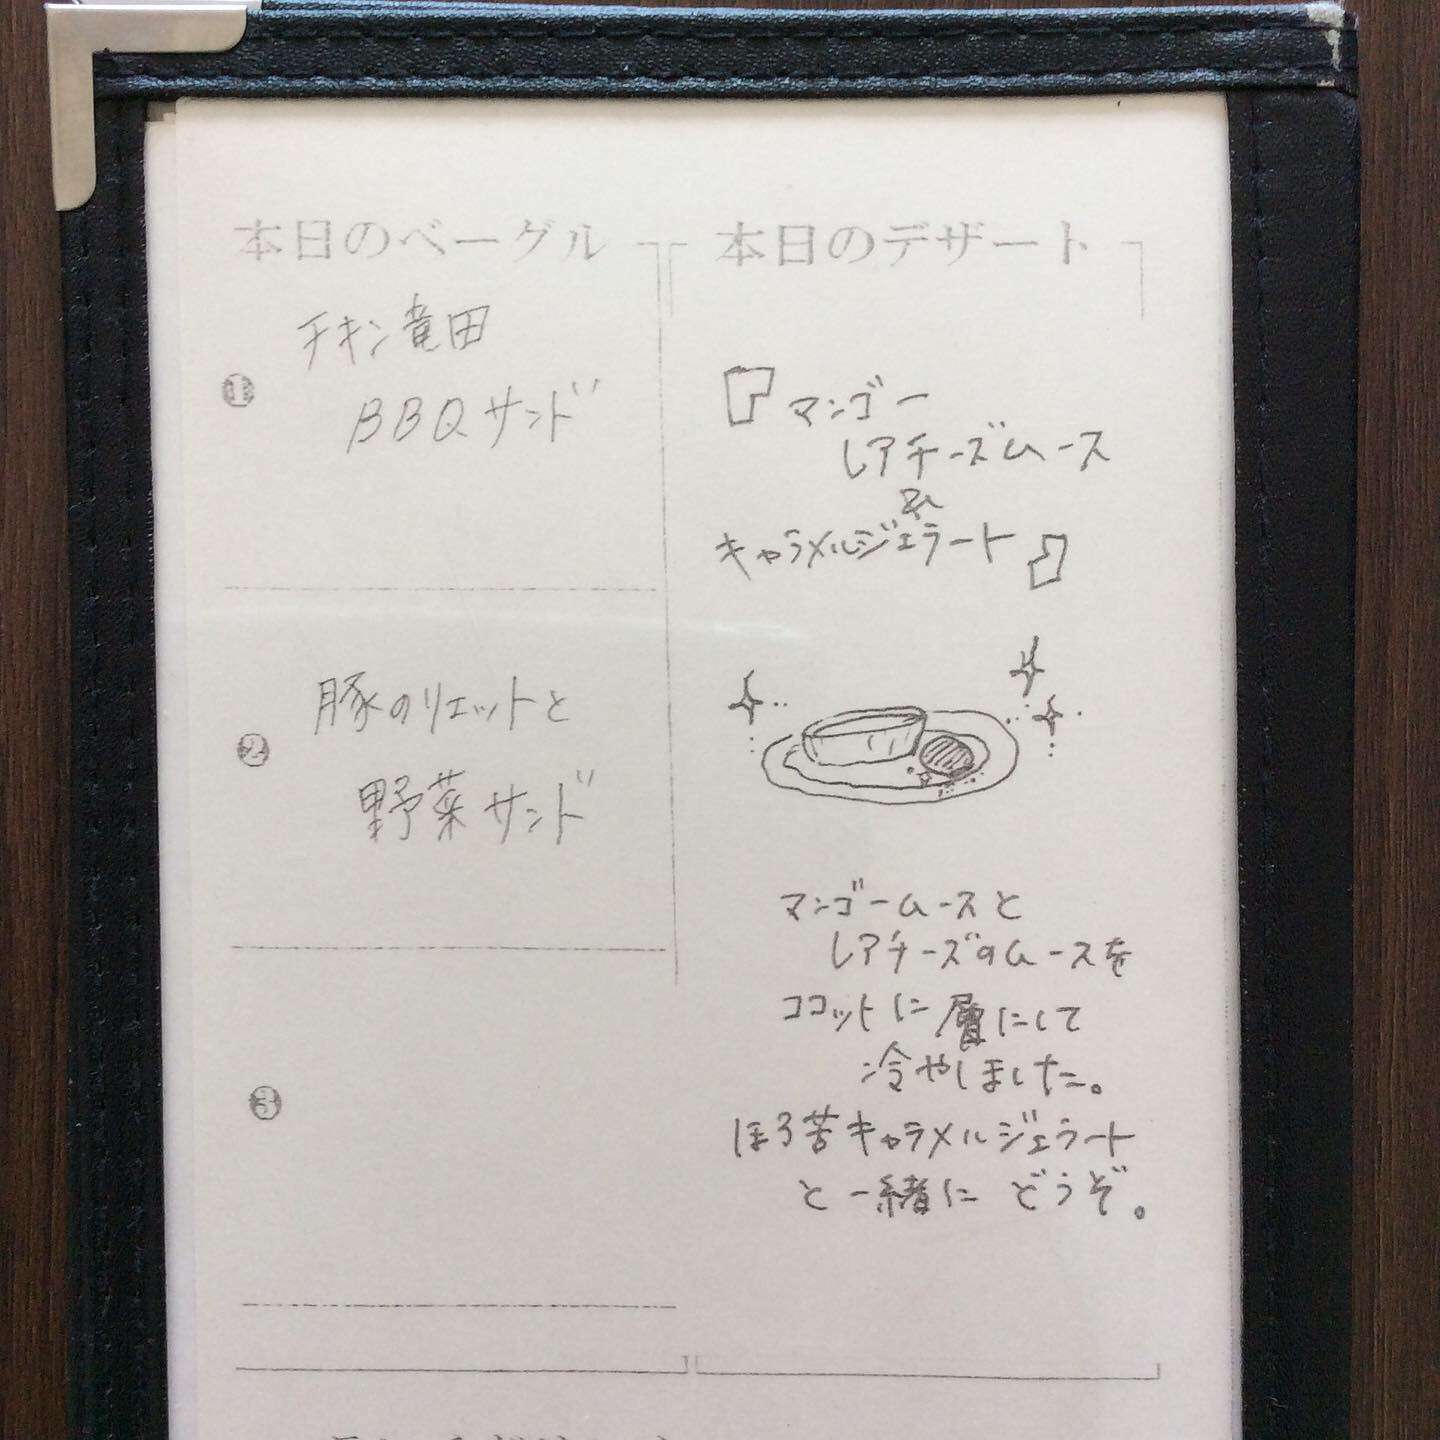 本日のベーグル
❶
チキン竜田
BBQサンド
❷
豚のリエットと
野菜サンド
❸
本日のデザート
『マンゴー
レアチーズムース
&
キャラメルジェラート』
マンゴームースと
レアチーズのムースを
ココットに層にして
冷やしました。
ほろ苦キャラメルジェラート
と一緒にどうぞ。